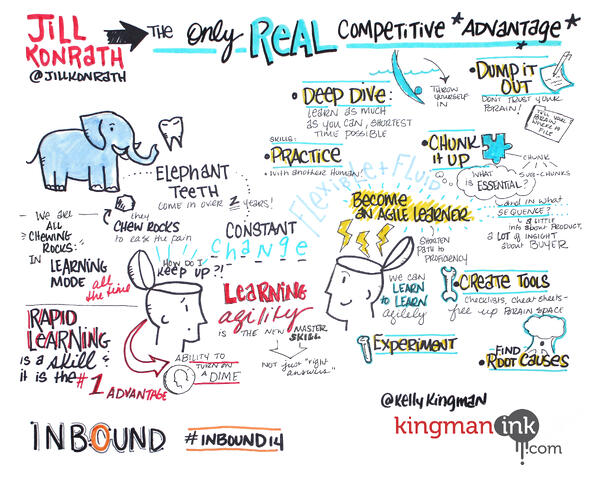 JILL
KONRATH
@JILLKONRATH
THE Only REAL COMPETITIVE *ADVANTAGE*
ELEPHANT
TEETH
COME IN OVER 2 YEARS!
they
CHEW ROCKS
to EASE the PAIN
WE ARE
ALL
CHEWING
ROCKS:
IN
LEARNING
MODE
all
the time
CONSTANT
change
HOW DO I
KEEP UP?!
RAPID
LEARNING
is a skill &
it is the #1 ADVANTAGE
ABILITY TO
TURN ON
A DIME
LEARNING
agility
IS THE NEW MASTER
SKILL
NOT just "right
answers"
• DEEP DIVE:
LEARN AS MUCH
AS YOU CAN, SHORTEST
TIME POSSIBLE
THROW
YOURSELF
IN
• DUMP IT
OUT
DON'T TRUST YOUR
BRAIN!
TELL YOUR
BRAIN WHERE
to FILE
SKILLS:
• PRACTICE
• With another Human!
• CHUNK
IT UP
CHUNK
SUB-CHUNKS
WHAT
IS ESSENTIAL?
and IN WHAT
SEQUENCE?
a little
info about PRODUCT,
A LOT of INSIGHT
about BUYER
Flexible + FLUID
BECOME
AN AGILE LEARNER
SHORTEN
PATH to
PROFICIENCY
WE CAN
LEARN
to LEARN
agilely
• CREATE TOOLS
CHECKLISTS, cheat sheets-
free up BRAIN SPACE
• EXPERIMENT
FIND
• ROOT CAUSES
@Kelly Kingman
kingman ink
.com
INBOUND #INBOUND14